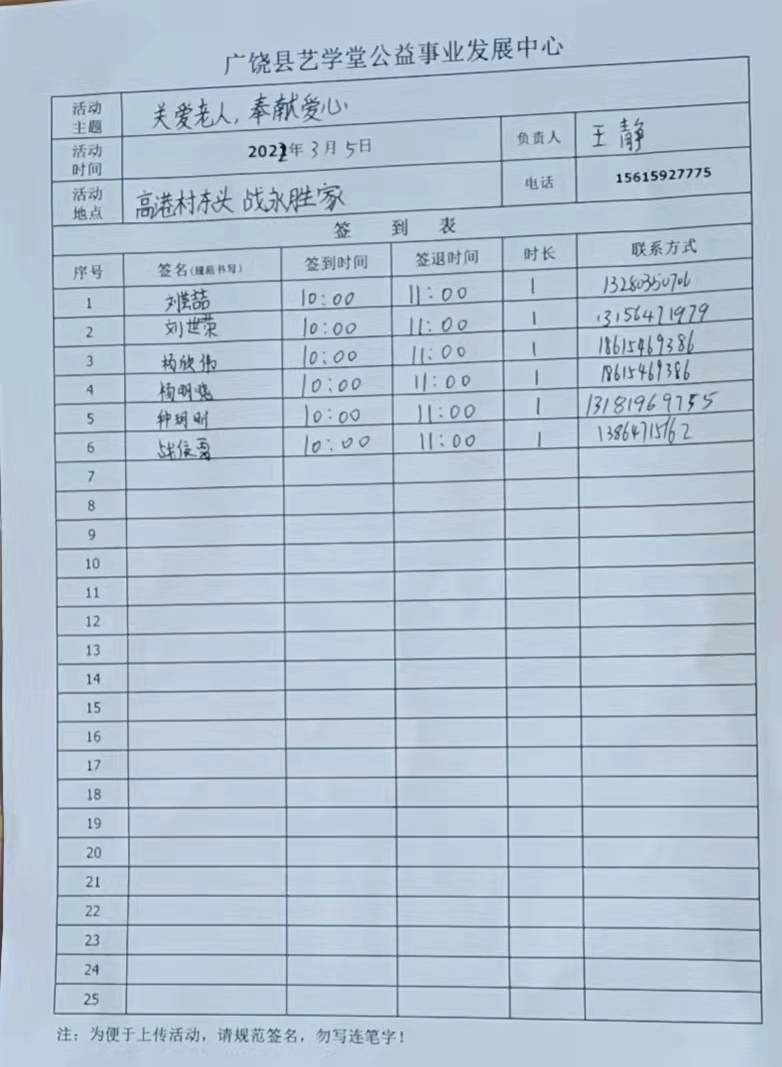 广饶县艺学堂公益事业发展中心
活动主题 关爱老人,奉献爱心
活动时间 2022年3月5日 负责人 王静
活动地点 高港村东头 战永胜家 电话 15615927775
签 到 表
序号 签名(规范书写) 签到时间 签退时间 时长 联系方式
1 刘喆 10:00 11:00 1 13280350706
2 刘世荣 10:00 11:00 1 13156471979
3 杨欣伟 10:00 11:00 1 18615469386
4 杨明 10:00 11:00 1 18615469386
5 钟玥昕 10:00 11:00 1 13181969755
6 战俊 10:00 11:00 1 13864715162
7
8
9
10
11
12
13
14
15
16
17
18
19
20
21
22
23
24
25
注:为便于上传活动,请规范签名,勿写连笔字!